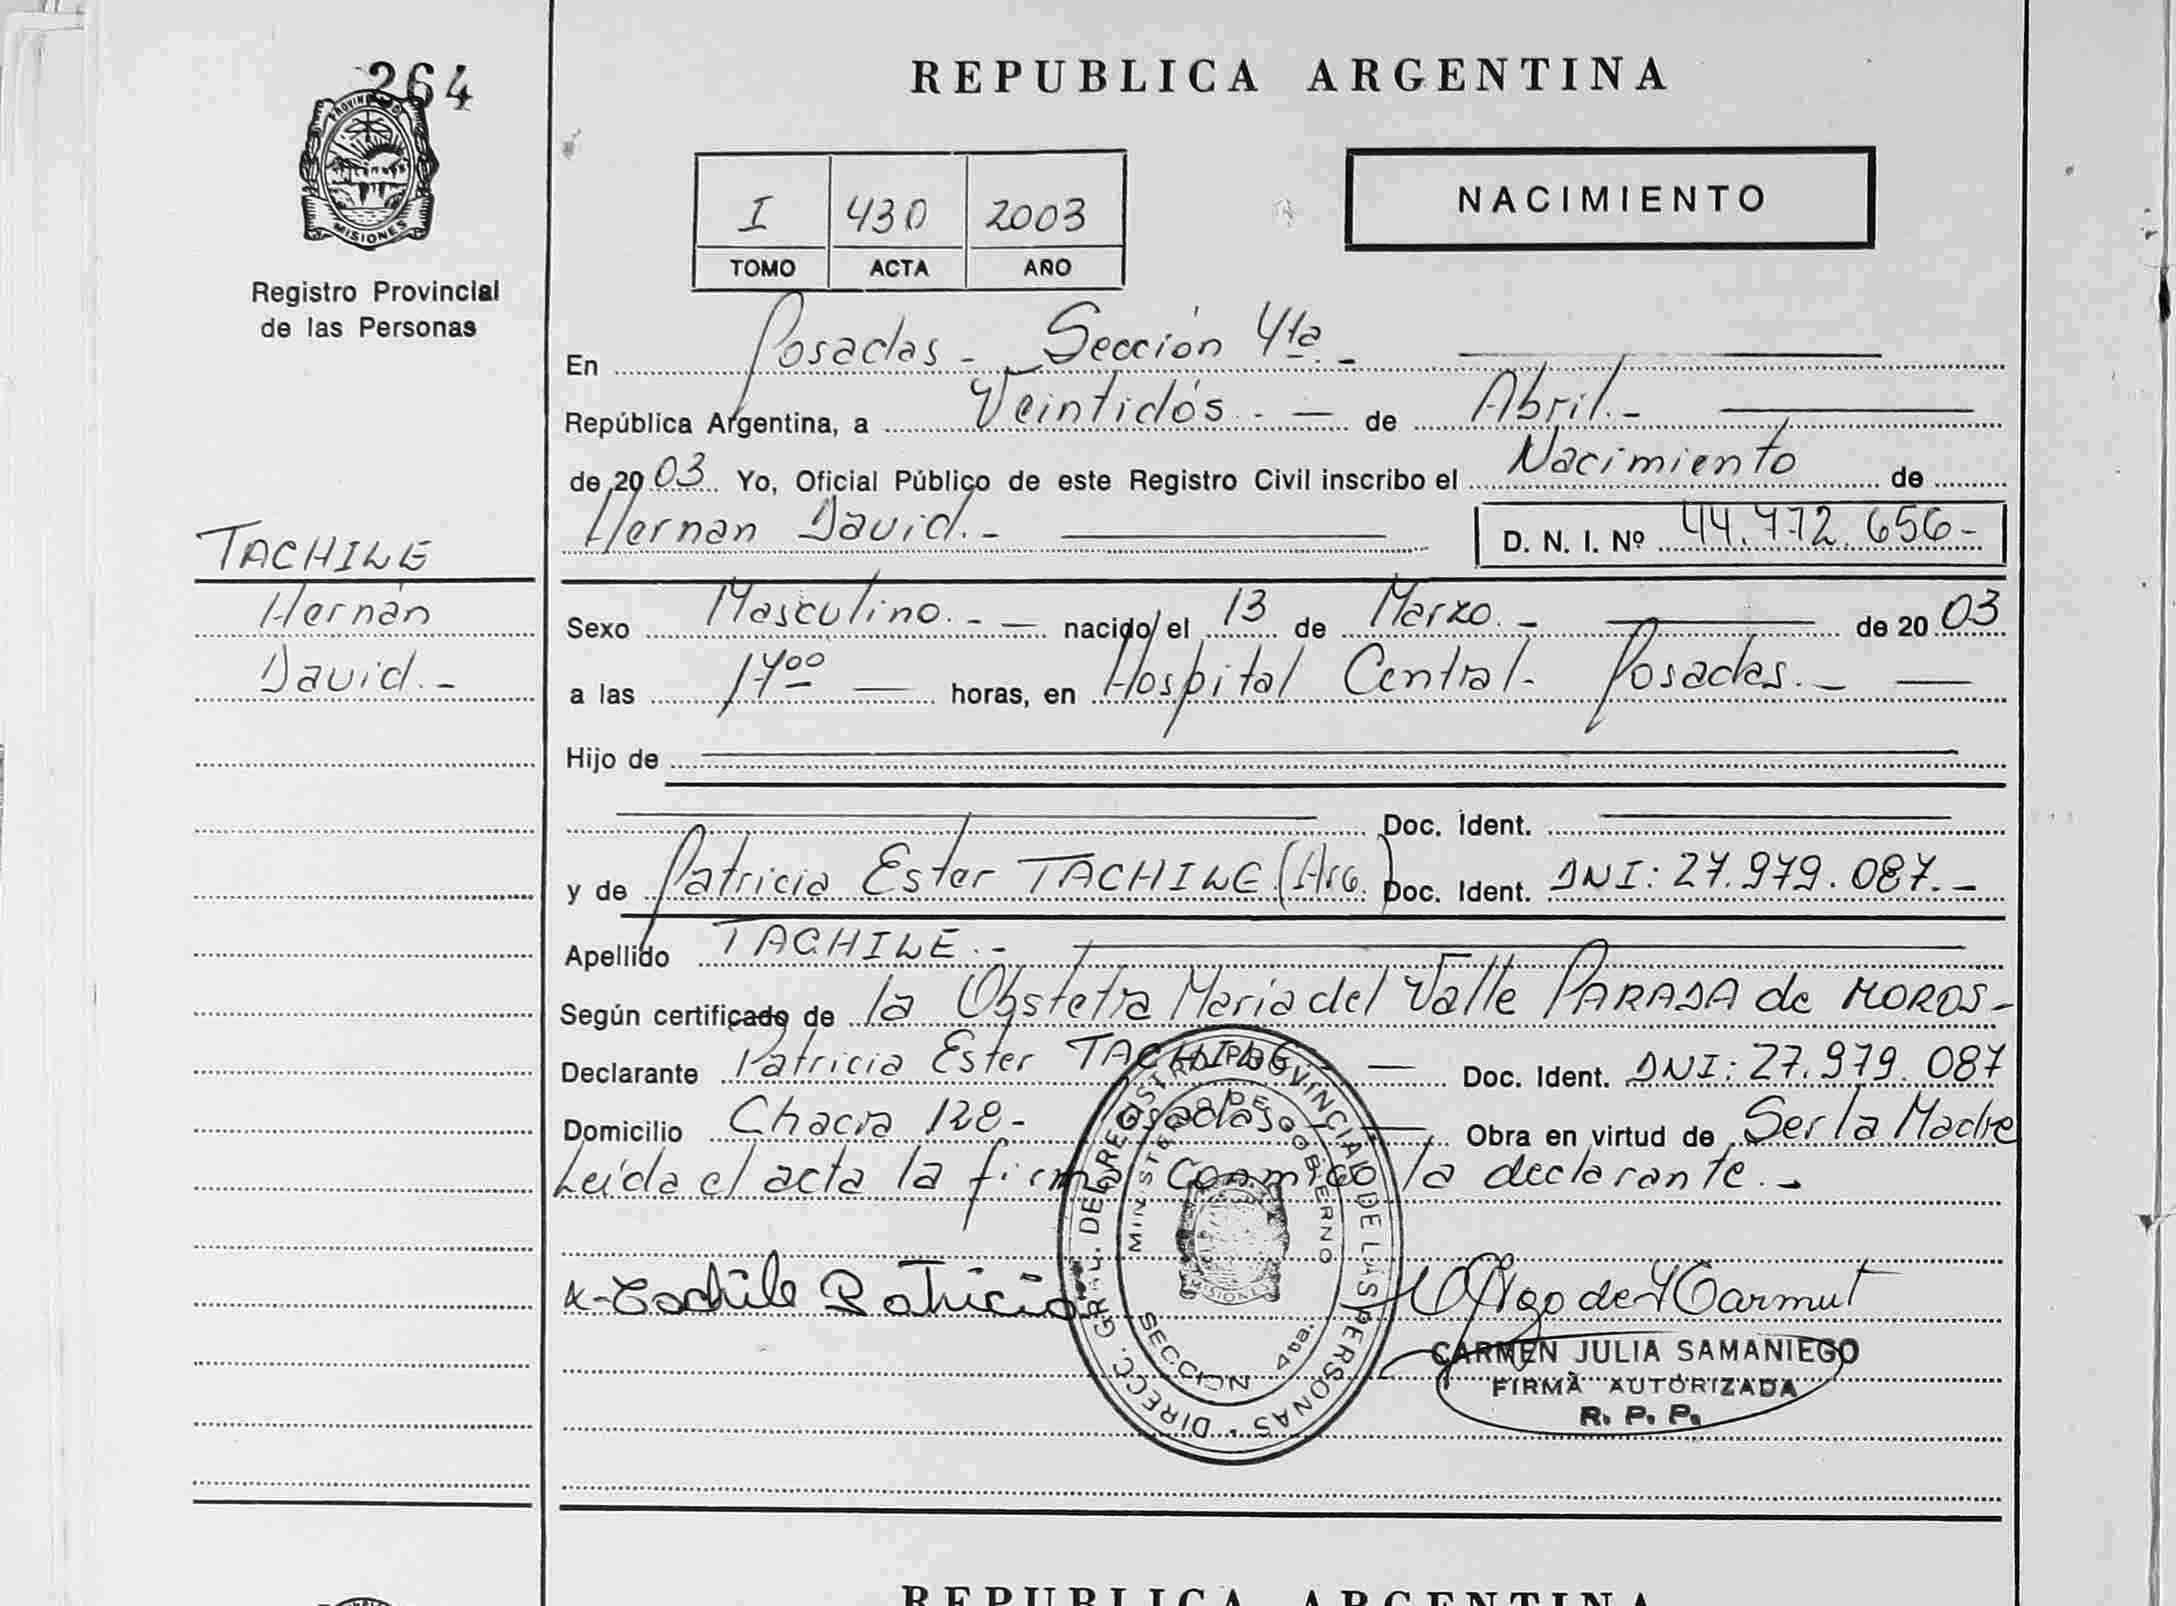 264
PROVINCIA DE
MISIONES
Registro Provincial
de las Personas
TACHILE
Hernán
David.-
REPUBLICA ARGENTINA
I 430 2003
TOMO ACTA AÑO
NACIMIENTO
En Posadas - Sección 4ta.-
República Argentina, a Veintidós.- de Abril.-
de 2003 Yo, Oficial Público de este Registro Civil inscribo el Nacimiento de
Hernan David.- D. N. I. Nº 44.772.656-
Sexo Masculino.- nacido el 13 de Marzo.- de 2003
a las 17 00 horas, en Hospital Central- Posadas.-
Hijo de
Doc. Ident.
y de Patricia Ester TACHILE (Arg.) Doc. Ident. DNI: 27.979.087.-
Apellido TACHILE.-
Según certificado de la Obstetra Maria del Valle PARADA de MOROS-
Declarante Patricia Ester TACHILE Doc. Ident. DNI: 27.979.087
Domicilio Chacra 128- Posadas Obra en virtud de Ser la Madre
Leída el acta la firma conmigo la declarante.-
x-Tachile Patricia
DIRECC. GRAL. DEL REGISTRO PROVINCIAL DE LAS PERSONAS
MINISTERIO DE GOBIERNO
SECCION 4ta.
MISIONES
CARMEN JULIA SAMANIEGO
FIRMA AUTORIZADA
R. P. P.
REPUBLICA ARGENTINA